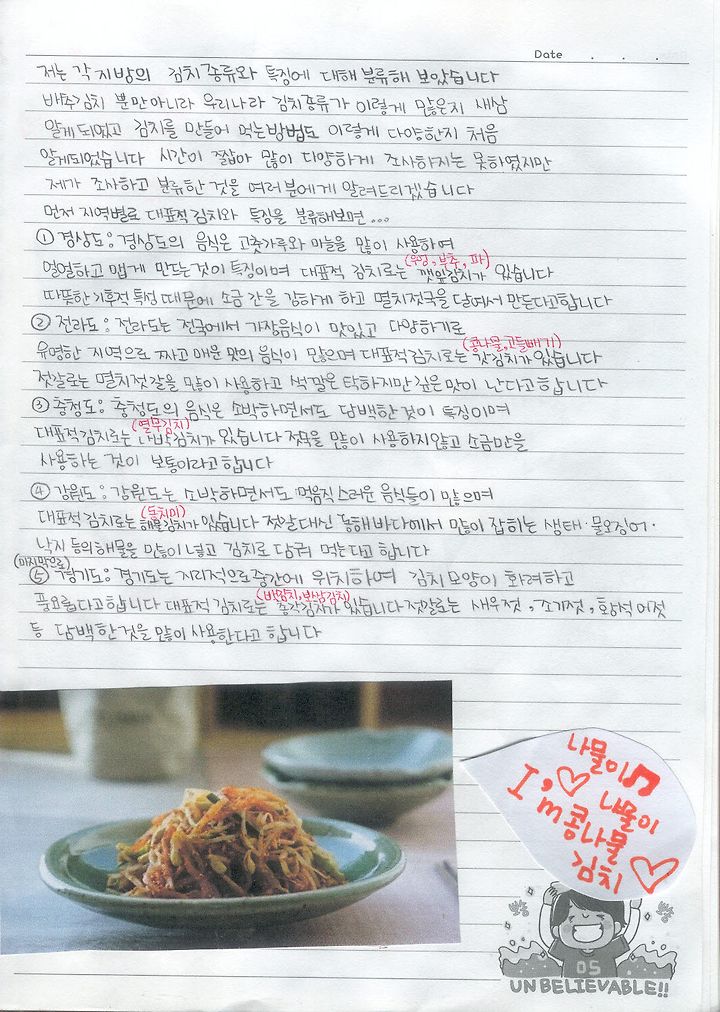 Date . . .
저는 각 지방의 김치 종류와 특징에 대해 분류해 보았습니다
배추김치 뿐만아니라 우리나라 김치종류가 이렇게 많은지 새삼
알게되었고 김치를 만들어 먹는방법도 이렇게 다양한지 처음
알게되었습니다 시간이 짧아 많이 다양하게 조사하지는 못하였지만
제가 조사하고 분류한 것을 여러분에게 알려드리겠습니다
먼저 지역별로 대표적김치와 특징을 분류해보면...
① 경상도: 경상도의 음식은 고춧가루와 마늘을 많이 사용하여
(우엉, 부추, 파)
얼얼하고 맵게 만드는것이 특징이며 대표적 김치로는 깻잎김치가 있습니다
따뜻한 기후적 특성 때문에 소금 간을 강하게 하고 멸치젓국을 달여서 만든다고합니다
② 전라도: 전라도는 전국에서 가장음식이 맛있고 다양하기로
(콩나물,고들빼기)
유명한 지역으로 짜고 매운 맛의 음식이 많으며 대표적김치로는 갓김치가 있습니다
젓갈로는 멸치젓갈을 많이 사용하고 색깔은 탁하지만 깊은맛이 난다고합니다
③ 충청도: 충청도의 음식은 소박하면서도 담백한 것이 특징이며
(열무김치)
대표적김치로는 나박김치가 있습니다 젓국을 많이 사용하지않고 소금만을
사용하는 것이 보통이라고합니다
④ 강원도: 강원도는 소박하면서도 먹음직스러운 음식들이 많으며
(동치미)
대표적 김치로는 해물김치가 있습니다 젓갈대신 동해바다에서 많이 잡히는 생태·물오징어·
낙지 등의해물을 많이 넣고 김치로 담궈 먹는다고 합니다
(마지막으로)
⑤ 경기도: 경기도는 지리적으로중간에 위치하여 김치모양이 화려하고
(비늠치,보쌈김치)
풍요롭다고합니다 대표적 김치로는 총각김치가 있습니다 젓갈로는 새우젓, 조기젓, 황석어젓
등 담백한것을 많이 사용한다고 합니다
나물이♫
♡ 나물이
I'm콩나물
김치♡
뽀송 뽀송
05
UNBELIEVABLE!!